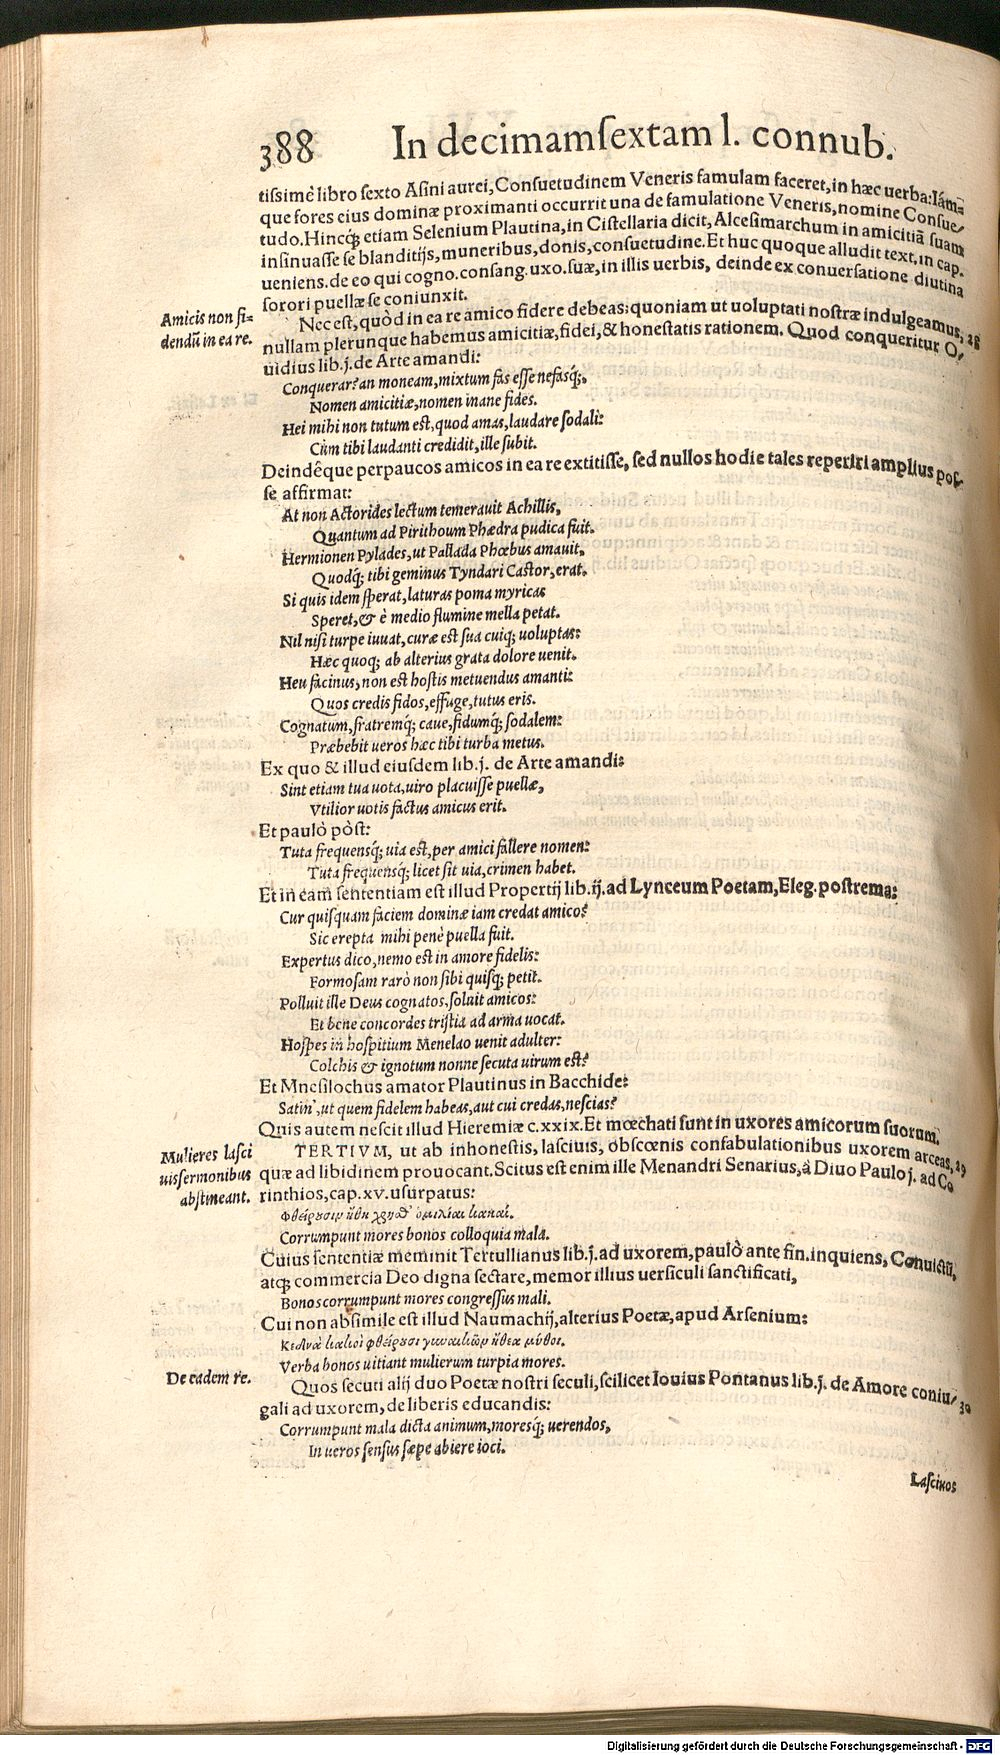 388 In decimamsextam l. connub.
tissimè libro sexto Asini aurei, Consuetudinem Veneris famulam faceret, in hæc uerba: Iám=
que fores eius dominæ proximanti occurrit una de famulatione Veneris, nomine Consue/
tudo. Hincq́; etiam Selenium Plautina, in Cistellaria dicit, Alcesimarchum in amicitiā suam
insinuasse se blanditijs, muneribus, donis, consuetudine. Et huc quoque alludit text. in cap.
ueniens. de eo qui cogno. consang. uxo. suæ, in illis uerbis, deinde ex conuersatione diutina
sorori puellæ se coniunxit.
Amicis non fi=
dendū in ea re.
Nec est, quòd in ea re amico fidere debeas: quoniam ut uoluptati nostræ indulgeamus, 28
nullam plerunque habemus amicitiæ, fidei, & honestatis rationem. Quod conqueritur O/
uidius lib. j. de Arte amandi:
Conquerar? an moneam, mixtum fas esse nefasq́;,
Nomen amicitiæ, nomen inane fides.
Hei mihi non tutum est, quod amas, laudare sodali:
Cùm tibi laudanti credidit, ille subit.
Deindêque perpaucos amicos in ea re extitisse, sed nullos hodie tales reperiri amplius pos-
se affirmat:
At non Actorides lectum temerauit Achillis,
Quantum ad Pirithoum Phædra pudica fuit.
Hermionen Pylades, ut Pallada Phœbus amauit,
Quodq́; tibi geminus Tyndari Castor, erat.
Si quis idem sperat, laturas poma myricas
Speret, & è medio flumine mella petat.
Nil nisi turpe iuuat, curæ est sua cuiq; uoluptas:
Hæc quoq; ab alterius grata dolore uenit.
Heu facinus, non est hostis metuendus amanti:
Quos credis fidos, effuge, tutus eris.
Cognatum, fratremq́; caue, fidumq́; sodalem:
Præbebit ueros hæc tibi turba metus.
Ex quo & illud eiusdem lib. j. de Arte amandi:
Sint etiam tua uota, uiro placuisse puellæ,
Vtilior uotis factus amicus erit.
Et paulò pòst:
Tuta frequensq́; uia est, per amici fallere nomen:
Tuta frequensq; licet sit uia, crimen habet.
Et in eam sententiam est illud Propertij lib. ij. ad Lynceum Poetam, Eleg. postrema:
Cur quisquam faciem dominæ iam credat amico?
Sic erepta mihi penè puella fuit.
Expertus dico, nemo est in amore fidelis:
Formosam rarò non sibi quisq; petit.
Polluit ille Deus cognatos, soluit amicos:
Et bene concordes tristia ad arma uocat.
Hospes in hospitium Menelao uenit adulter:
Colchis & ignotum nonne secuta uirum est?
Et Mnesilochus amator Plautinus in Bacchide:
Satin', ut quem fidelem habeas, aut cui credas, nescias?
Quis autem nescit illud Hieremiæ c. xxix. Et mœchati sunt in uxores amicorum suorum.
Mulieres lasci
uis sermonibus
abstineant.
TERTIVM, ut ab inhonestis, lasciuis, obscœnis confabulationibus uxorem arceas, 29
quæ ad libidinem prouocant. Scitus est enim ille Menandri Senarius, à Diuo Paulo j. ad Co
rinthios, cap. xv. usurpatus:
Φθείρουσιν ἤθη χρησθ' ὁμιλίαι κακαί.
Corrumpunt mores bonos colloquia mala.
Cuius sententiæ meminit Tertullianus lib. j. ad uxorem, paulò ante fin. inquiens, Conuictū,
atq́; commercia Deo digna sectare, memor illius uersiculi sanctificati,
Bonos corrumpunt mores congressus mali.
Cui non absimile est illud Naumachij, alterius Poetæ, apud Arsenium:
Κεδνὰ κακοὶ φθείρουσι γυναικῶν ἤθεα μῦθοι.
Verba bonos uitiant mulierum turpia mores.
De eadem re.
Quos secuti alij duo Poetæ nostri seculi, scilicet Iouius Pontanus lib. j. de Amore coniu/ 30
gali ad uxorem, de liberis educandis:
Corrumpunt mala dicta animum, moresq́; uerendos,
In ueros sensus sæpe abiere ioci.
Lasciuos
Digitalisierung gefördert durch die Deutsche Forschungsgemeinschaft - DFG